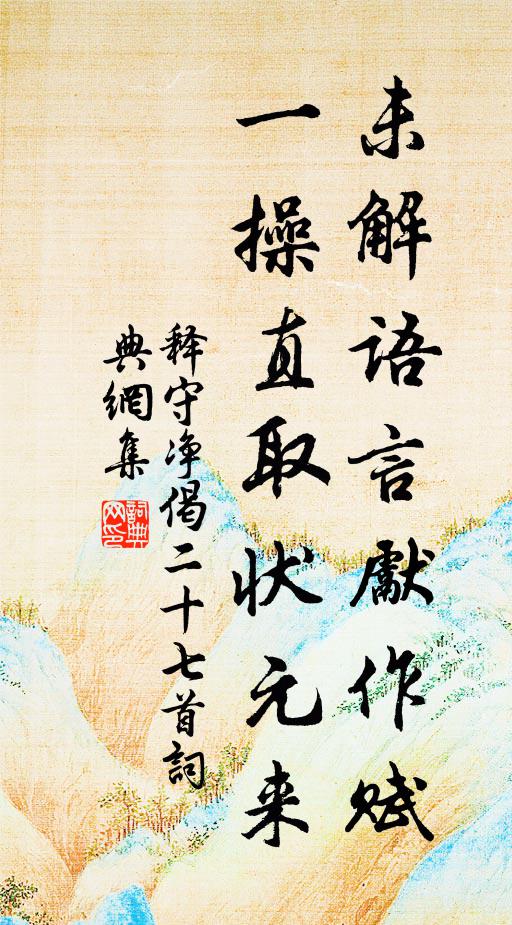 未解语言獻作赋
一操直取状元来
释守净偈二十七首詞
典網集
詞典
网印